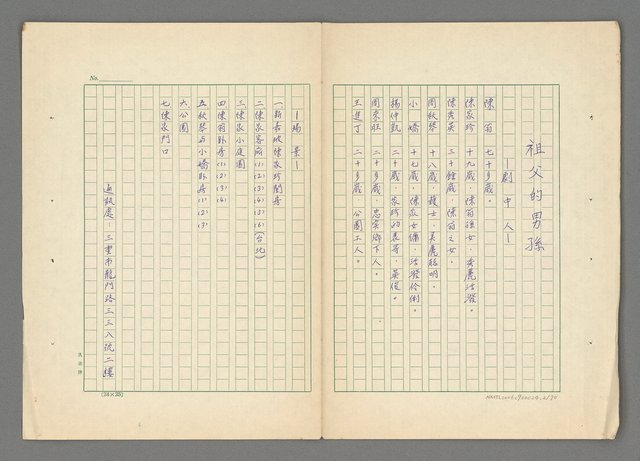 祖父的男孫
—劇中人—
陳翁 七十多歲。
陳家珍 十九歲，陳翁孫女，秀麗活潑。
陳秀英 三十餘歲，陳翁之女。
周秋琴 十八歲，護士，美麗聰明。
小嬌 十七歲，陳家女傭，活潑伶俐。
楊仲凱 二十歲，家珍的表哥，英俊。
周來旺 二十多歲，忠實鄉下人。
王進丁 二十多歲，公園工人。
—場景—
一、新店坡陳家珍閨房
二、陳家客廳(1)(2)(3)(4)(5)(6)(台北)
三、陳家小庭園
四、陳翁臥房(1)(2)(3)(4)
五、秋琴與小嬌臥房(1)(2)(3)
六、公園
七、陳家門口
通訊處：三重市龍門路三三八號二樓
No.
(24×25)